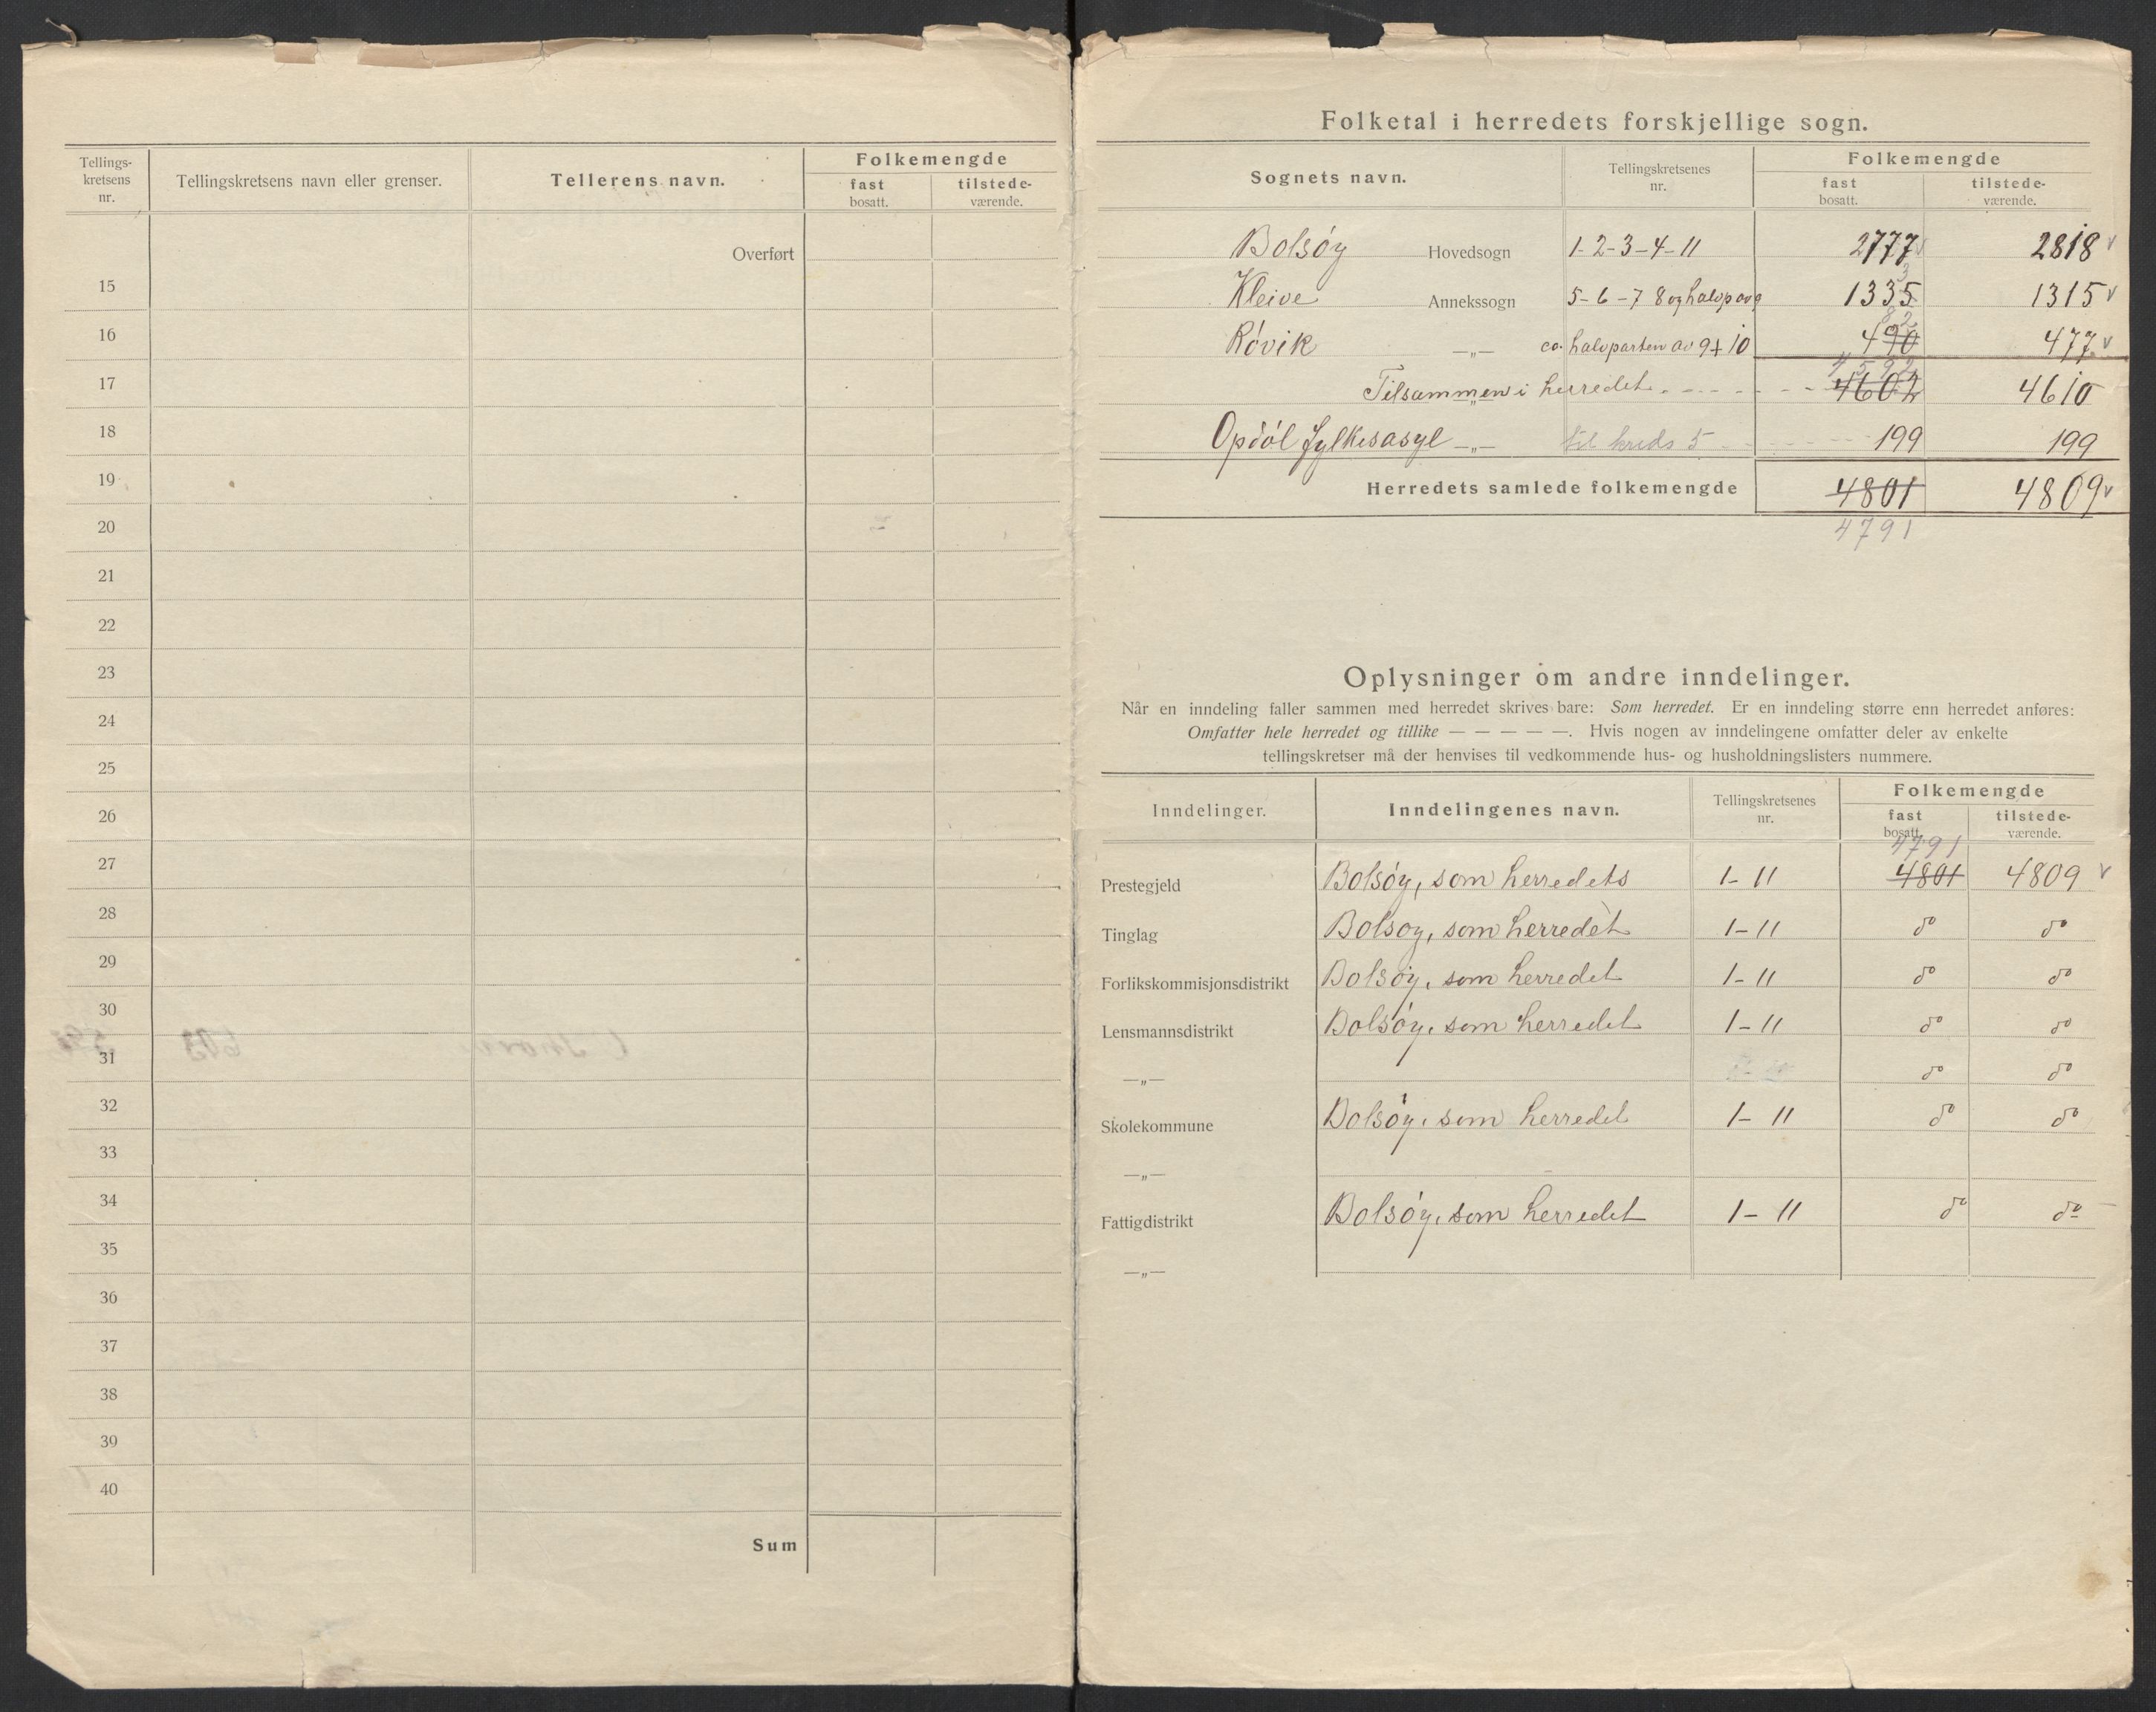 Tellings-
kretsens
nr.
Tellingskretsens navn eller grenser.
Tellerens navn.
Folkemengde
fast
bosatt.
tilstede-
værende.
Overført
15
16
17
18
19
20
21
22
23
24
25
26
27
28
29
30
31
32
33
34
35
36
37
38
39
40
Sum
Folketal i herredets forskjellige sogn.
Sognets navn.
Tellingskretsenes
nr.
Folkemengde
fast
bosatt.
tilstede-
værende.
Bolsøy Hovedsogn 1-2-3-4-11 2777 2818 v
3
Kleive Annekssogn 5-6-7 8 og halvp av 9 1335 1315 v
82
Røvik —„— ca. halvparten av 9 + 10 490 477 v
4592
Tilsammen i herredet 4602 4610
Opdøl fylkesasyl —„— til kreds 5 199 199
Herredets samlede folkemengde 4801 4809 v
4791
Oplysninger om andre inndelinger.
Når en inndeling faller sammen med herredet skrives bare: Som herredet. Er en inndeling større enn herredet anføres:
Omfatter hele herredet og tillike — — — — —. Hvis nogen av inndelingene omfatter deler av enkelte
tellingskretser må der henvises til vedkommende hus- og husholdningslisters nummere.
Inndelinger.
Inndelingenes navn.
Tellingskretsenes
nr.
Folkemengde
fast
bosatt.
tilstede-
værende.
4791
Prestegjeld Bolsøy, som herredets 1-11 4801 4809 v
Tinglag Bolsøy, som herredet 1-11 do do
Forlikskommisjonsdistrikt Bolsøy, som herredet 1-11 do do
Lensmannsdistrikt Bolsøy, som herredet 1-11 do do
—„— do do
Skolekommune Bolsøy, som herredet 1-11 do do
—„—
Fattigdistrikt Bolsøy, som herredet 1-11 do do
—„—